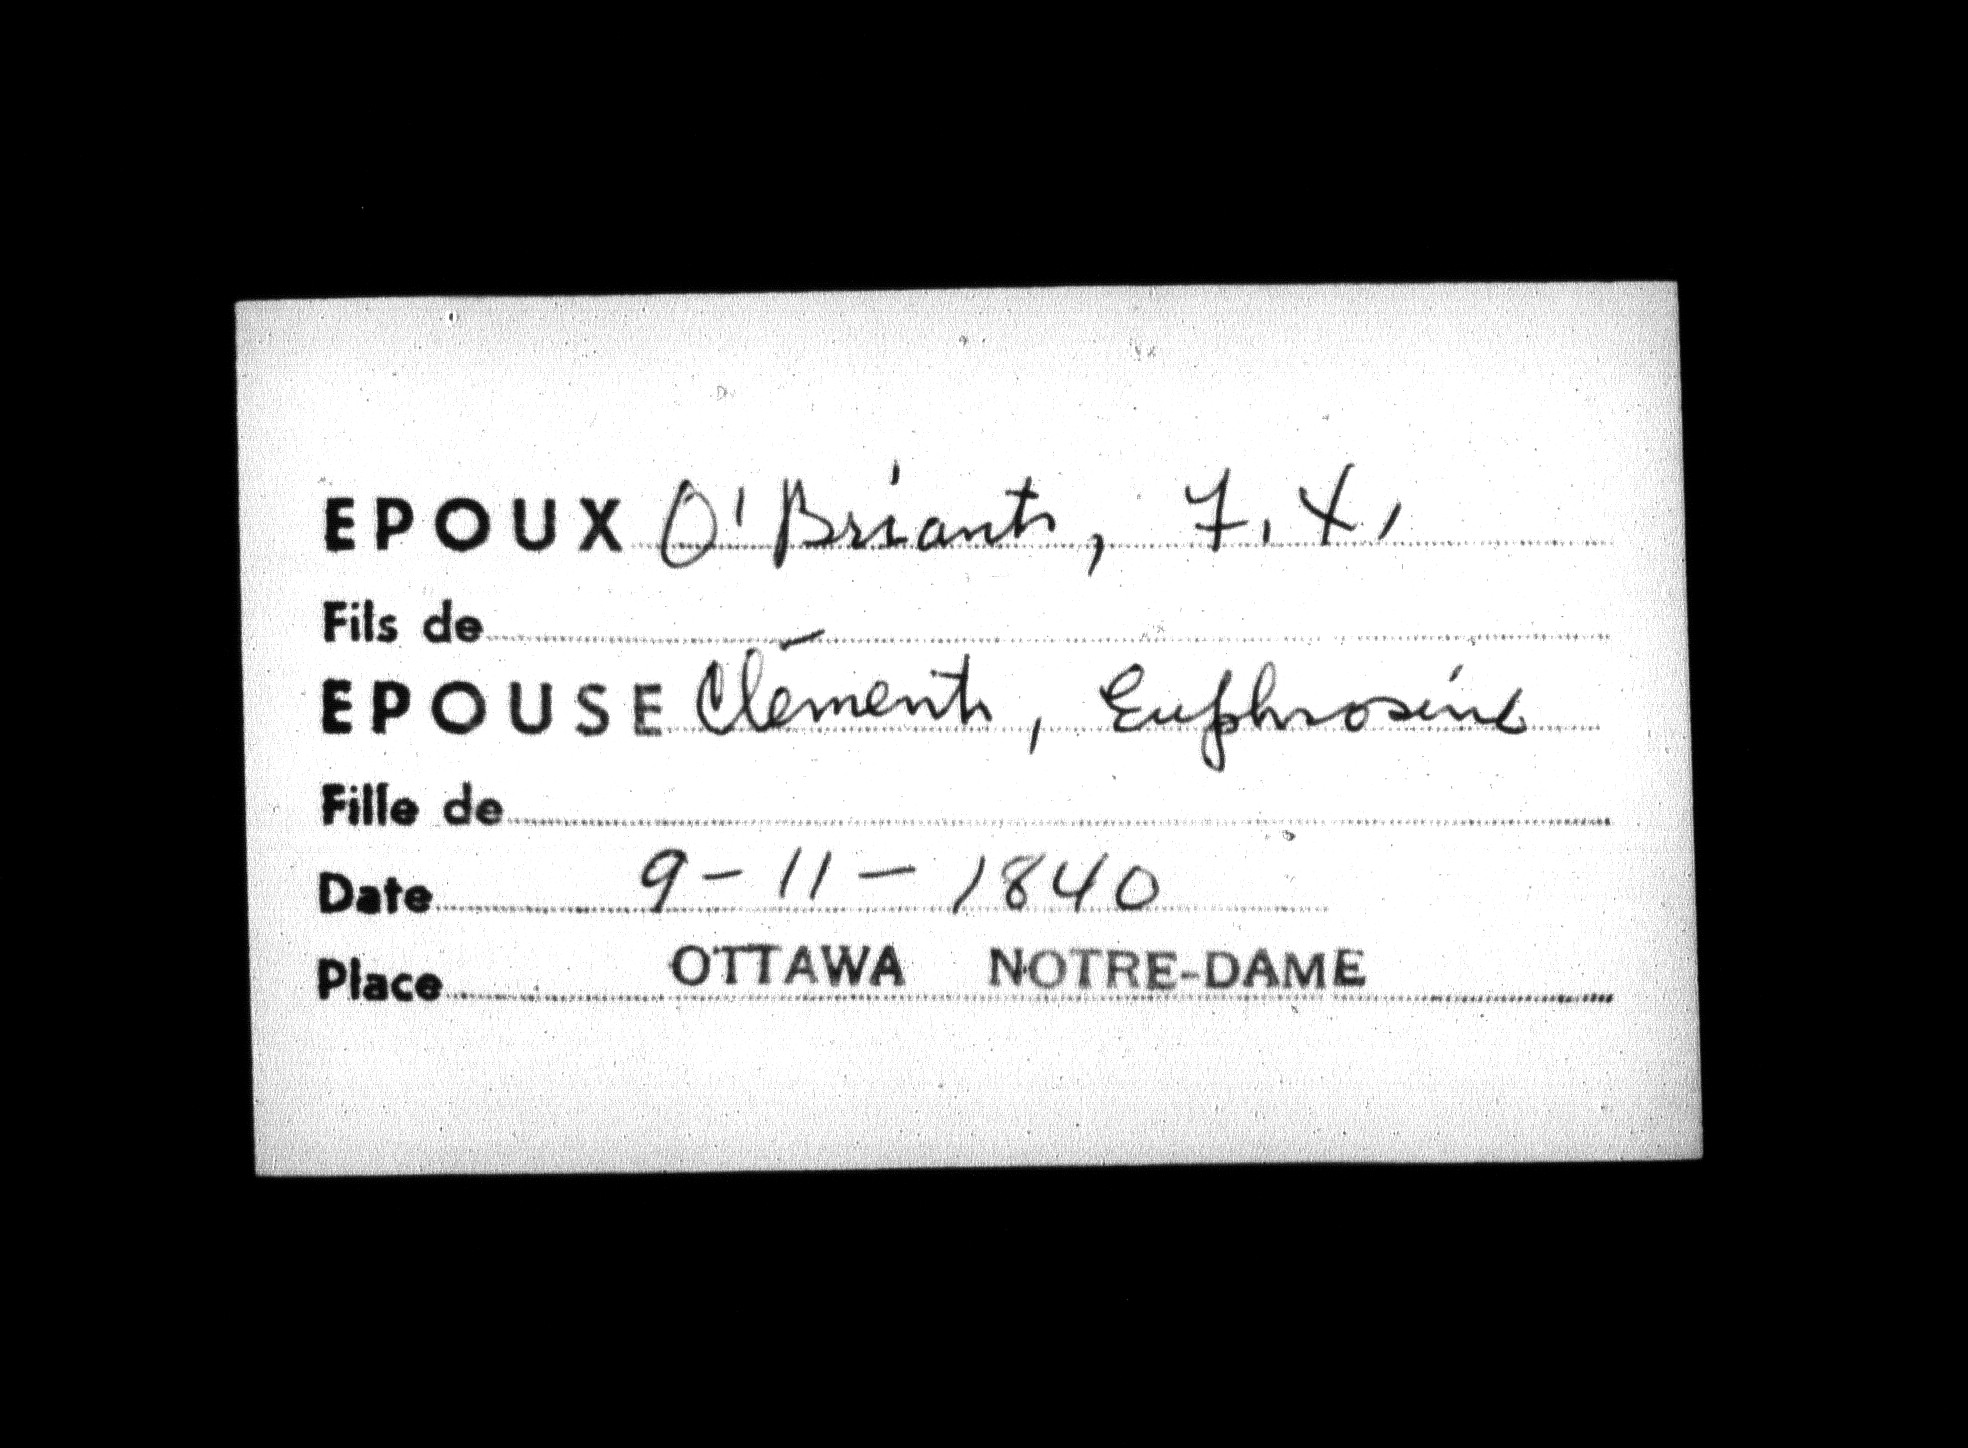 EPOUX O'Briant, F. X.
Fils de
EPOUSE Clément, Euphrosine
Fille de
Date 9-11-1840
Place OTTAWA NOTRE-DAME